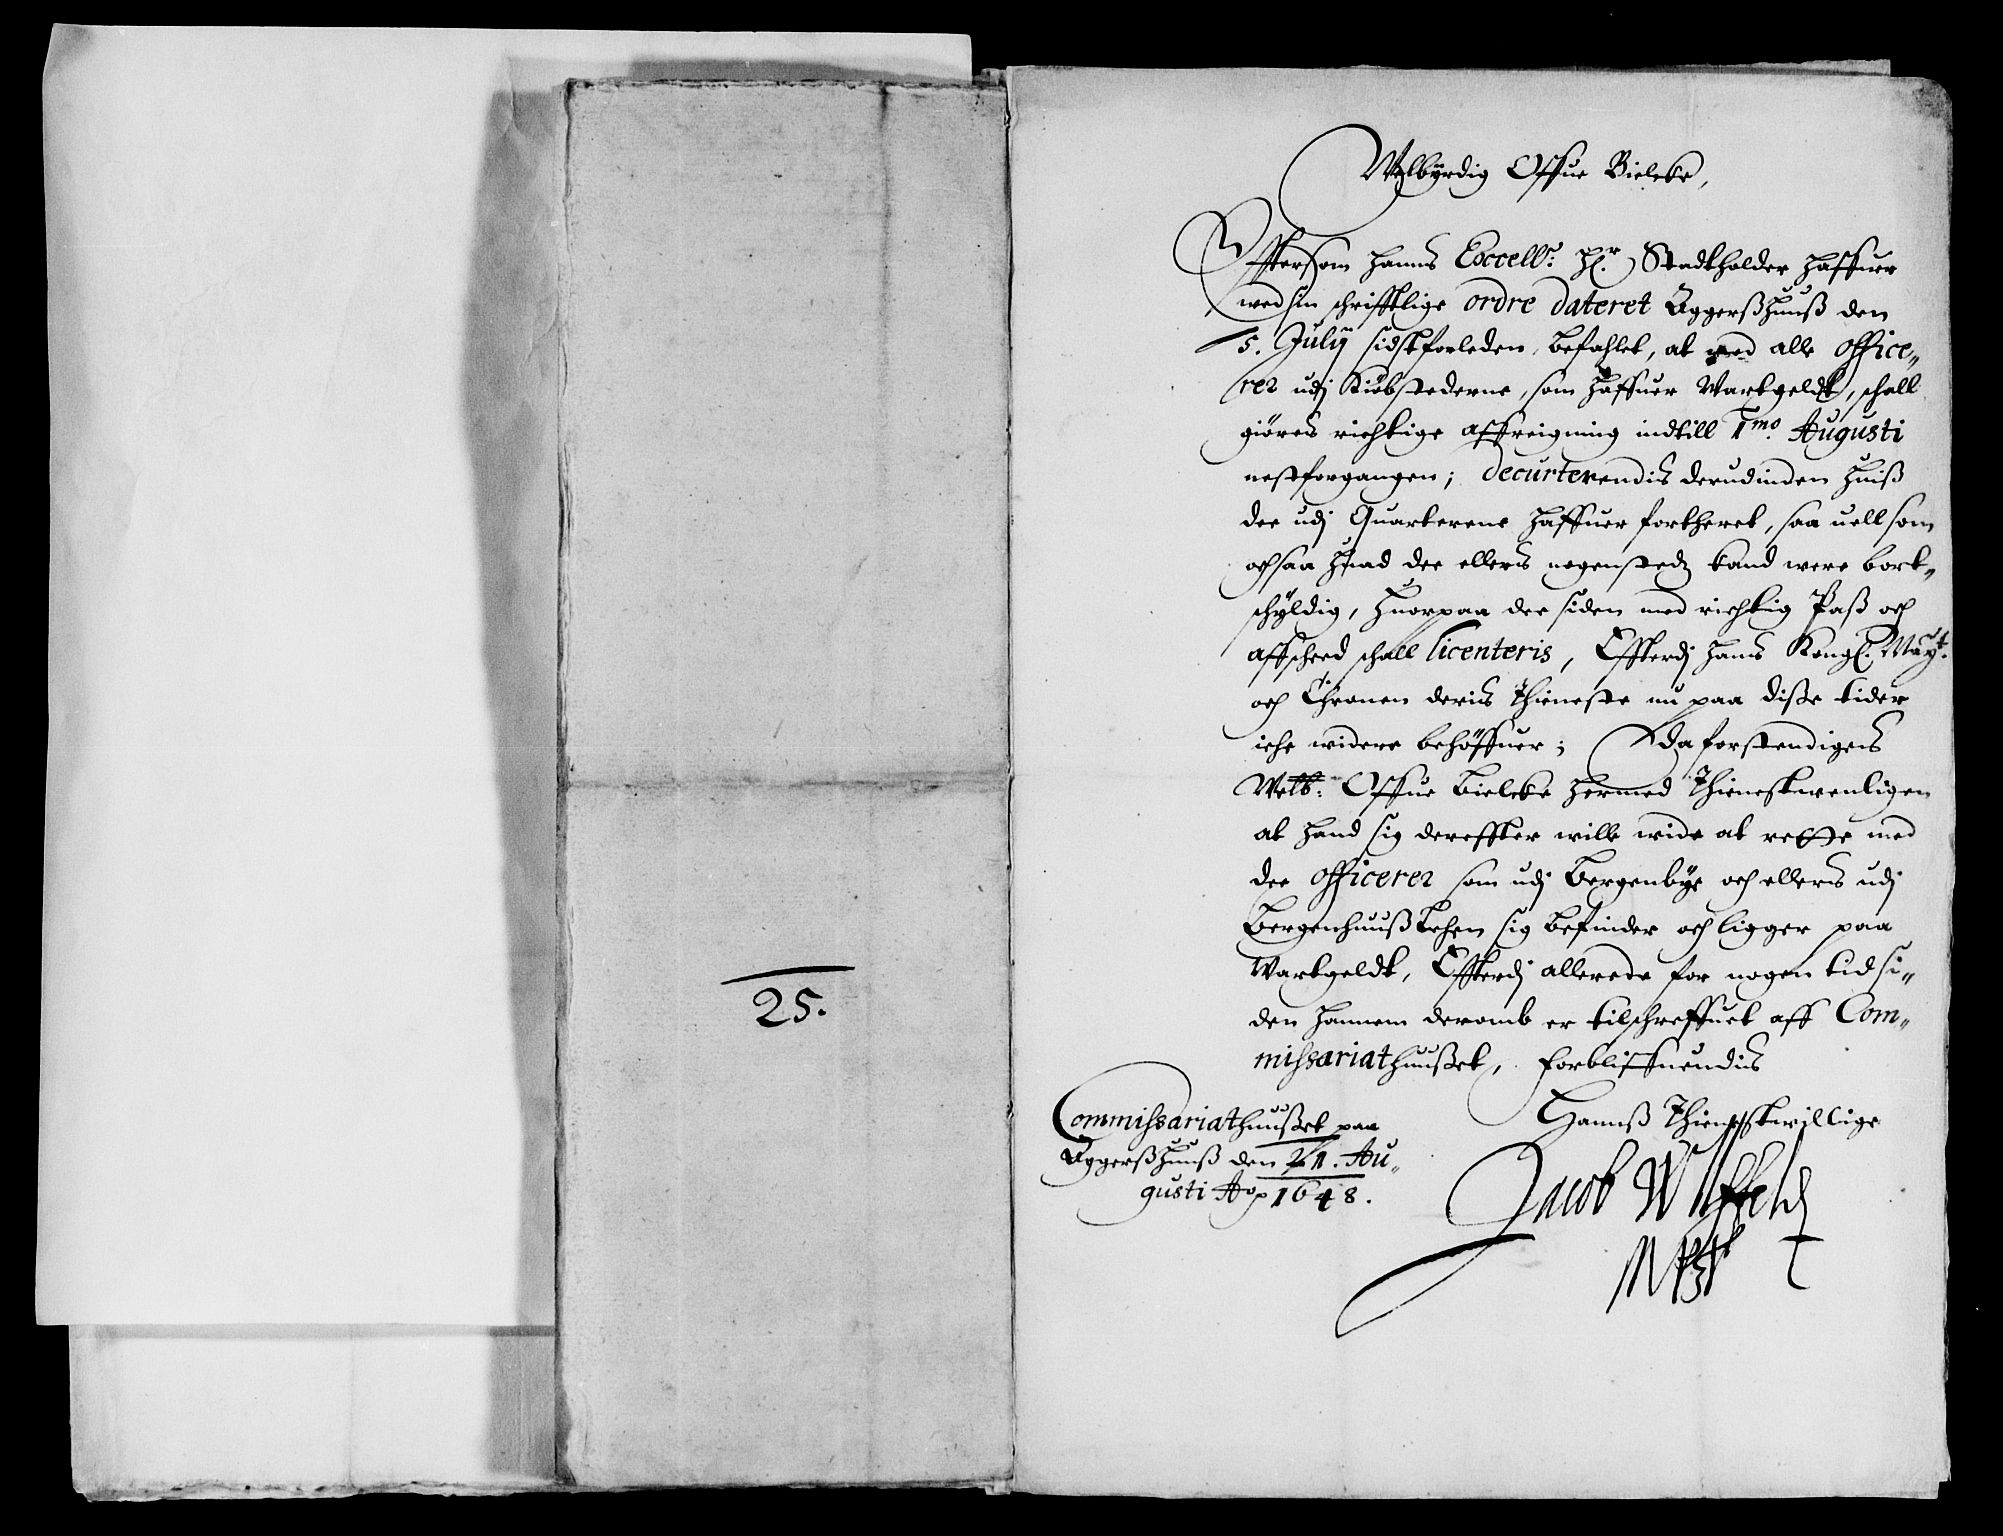 25.
Welbÿrdig Offue Bielcke,
Effterssom hanns Excell:r Hr: Stadtholder haffuer
wed sin schrifftlige ordre dateret Aggerßhuuß den
5. Julij sidstforleden, befahlet, at med alle office„
rer udj Kiøbstederne, som haffuer Wartgeldt, schall
giøres richtige affreigning indtill 1mo. Augusti
nestforgangen; decurterendis derudinden huiß
dee udj Quarterene haffuer fortheret, saa uell som
ochsaa huad dee ellers nogensteds kand were bort„
schÿldig, huorpaa dee siden med richtig Paß och
affscheed schall licenteris, Effterdj hans Kongl: Maÿt:
och Chronen deris Thieneste nu paa diße tider
iche widere behöffuer; Da forstendiges
Welb: Offue Bielcke hermed Thienestwenligen
at hand sig dereffter wille wide at rette med
dee officerer som udj Bergenbÿe och ellers udj
Bergenhuuß Lehen sig befinder och ligger paa
Wartgeldt, Effterdj allerede for nogen tid si„
den hannem deromb er tilschreffuet aff Com„
missariathuußet, forbliffuendis
Hannß Thienestwillige
Commissariathuußet paa
Aggerßhuuß den 21. Au„
gusti Ao 1648.
Jacob Wlffeld